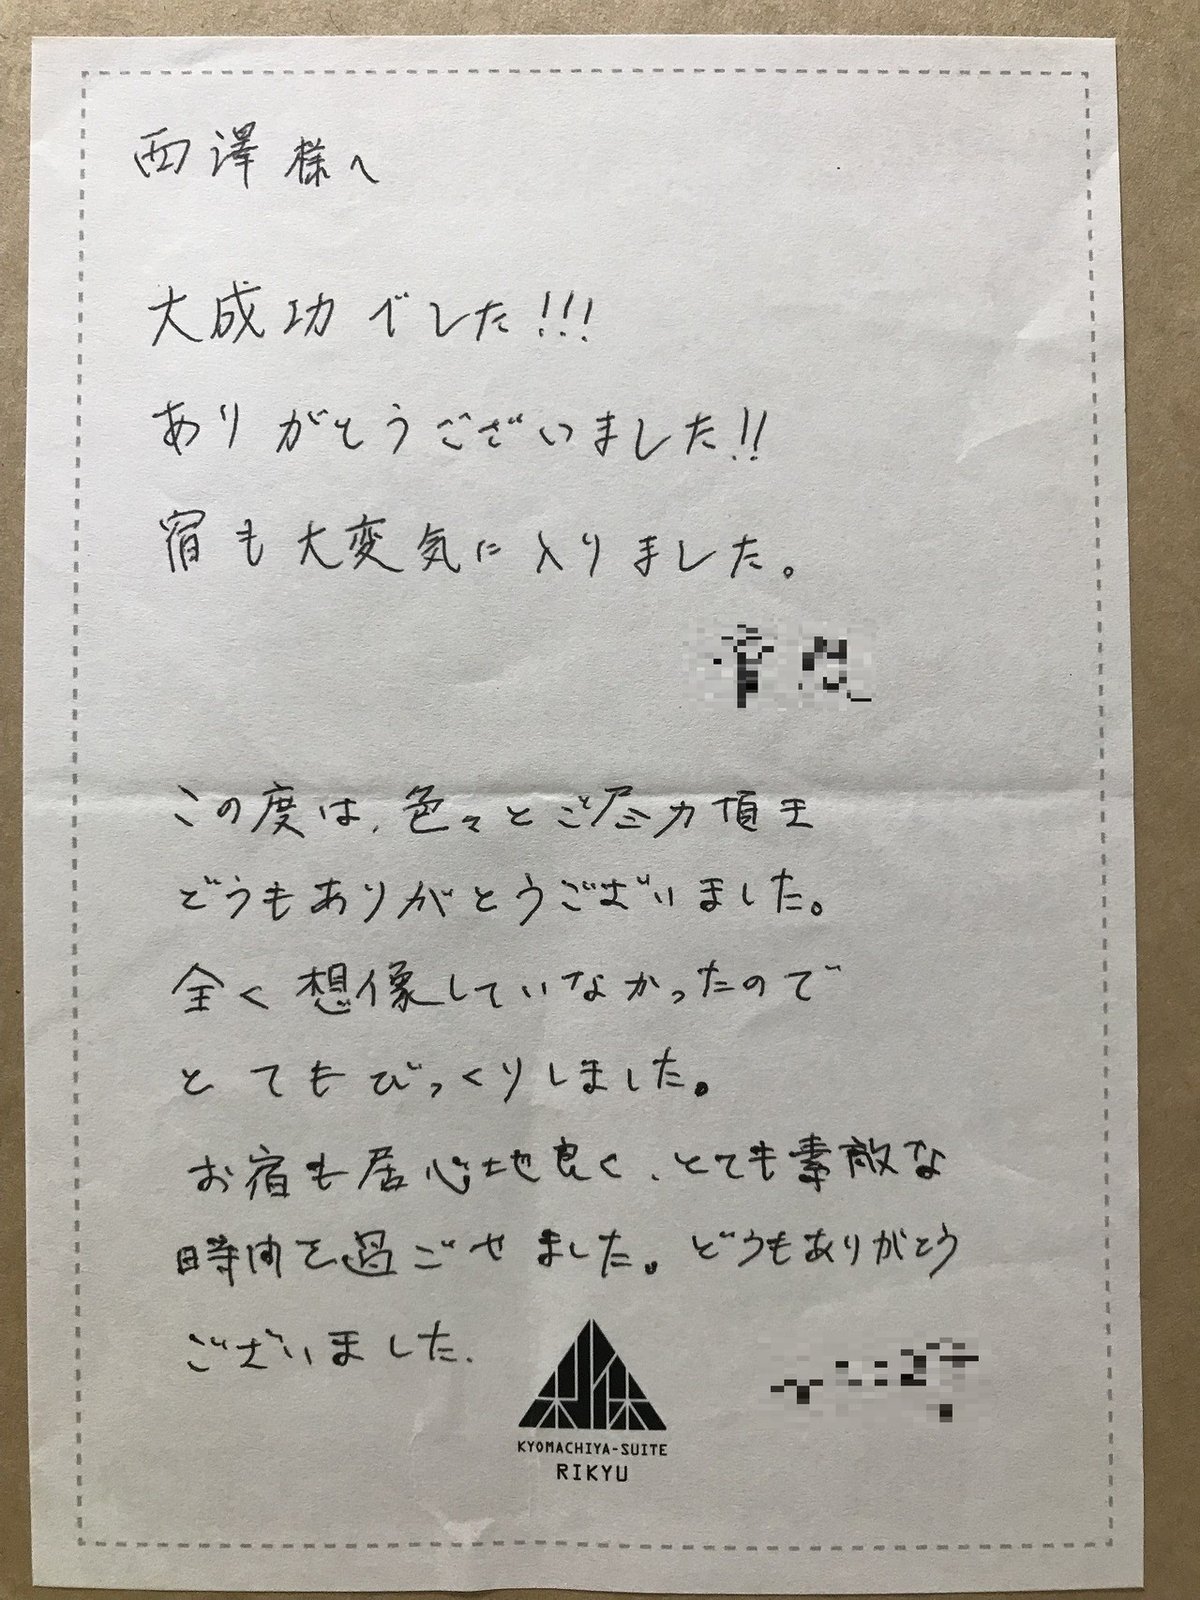 西澤様へ
大成功でした!!!
ありがとうございました!!
宿も大変気に入りました。
この度は、色々とご尽力頂き
どうもありがとうございました。
全く想像していなかったので
とてもびっくりしました。
お宿も居心地良く、とても素敵な
時間を過ごせました。どうもありがとう
ございました.
KYOMACHIYA-SUITE
RIKYU